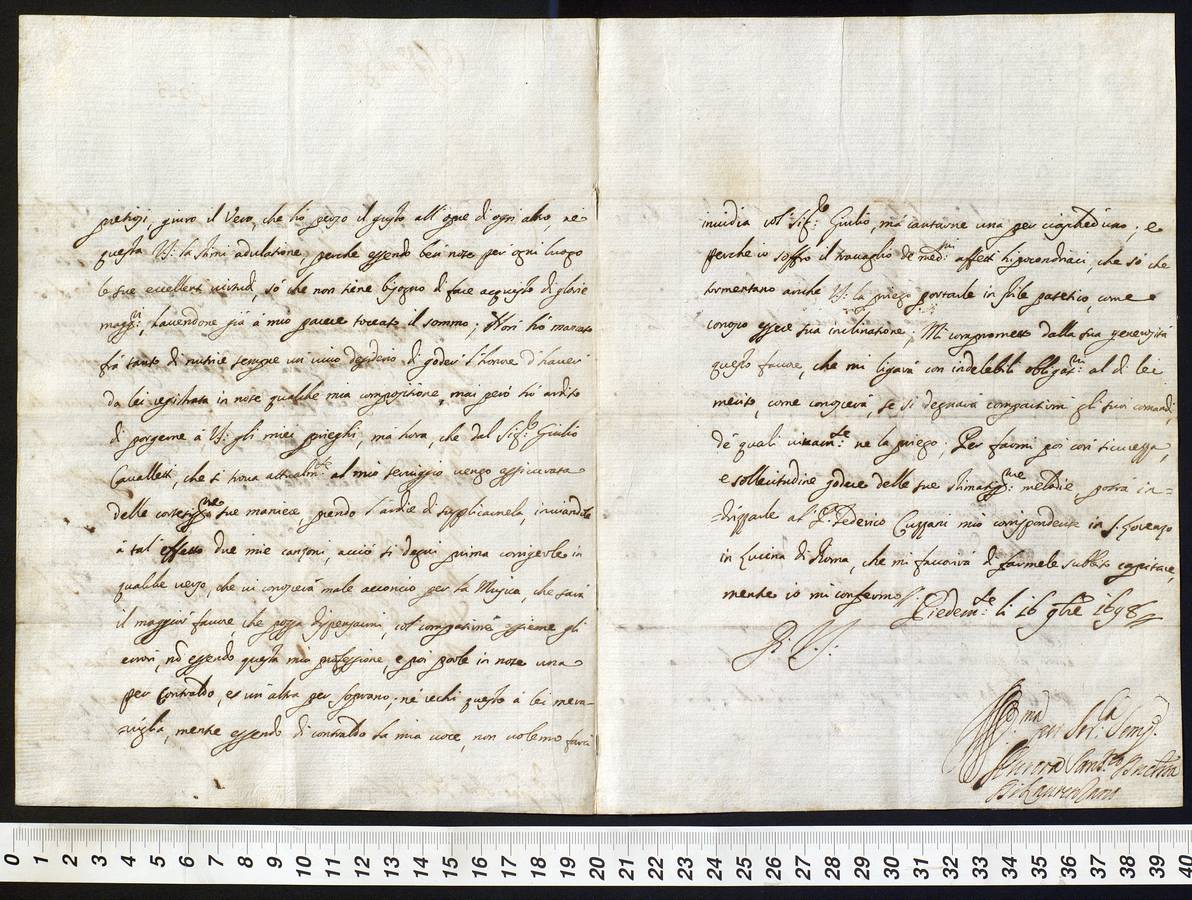 pretiosi, giuro il Vero, che hò perso il gusto all' opre di ogni altro, nè
questa V.S. la stimi adulatione, perche essendo ben note per ogni luogo
le sue eccellenti virtud, sò che non tiene bisogno di fare acquisto di glorie
magg.ri, havendone già à mio parere toccato il sommo; Non hò mancato
frà tanto di nutrire sempre un vivo desiderio di goder l'honore d'haver
da lei registrata in note qualche mia compositione, mai però hò ardito
di porgerne à V.S. gli miei prieghi, mà hora, che dal Sig.r Giulio
Cavalletti, che si trova att.almte al mio serviggio vengo assicurata
delle cortesiss.me sue maniere, prendo l'ardire di supplicarnela, inviandole
à tal effetto due mie canzoni, acciò si degni prima corrigerle in
qualche verso, che vi conoscerà male acconcio per la Musica, che sarà
il maggior favore, che possa dispensarmi, col compatirne assieme gli
errori, nò essendo questa mia professione, e poi porle in note una
per Contralto, et un'altra per Soprano, nè rechi questo à lei mera=
viglia, mentre essendo di contralto la mia voce, non volemo farci
invidia col Sig.r Giulio, mà cantarne una per ciascheduno; e
perche io soffro il travaglio de med.mi affetti hipocondriaci, che sò che
tormentano anche V.S. la priego portarle in stile patetico, come
conosco essere sua inclinatione; Mi comprometto dalla sua generosità
questo favore, che mi ligarà con indelebili obligat.ni al di lei
merito, come conoscerà, se si degnarà compartirmi gli suoi comandi,
de quali vivamte ne la priego; Per farmi poi con sicurezza,
e sollecitudine godere delle sue stimatiss.me melodie, potrà in=
=drizzarle al P. Federico Cuzzani mio corrispondente in S. Lorenzo
in Lucina di Roma, che mi favorirà di farmele subbito capitare,
mentre io mi confermo Piedem.te li 16 9bre 1698
Di V.S.
Aff.ma per Ser.la Sempr.
Aurora Sans.no Duchessa
Di Laurenzano